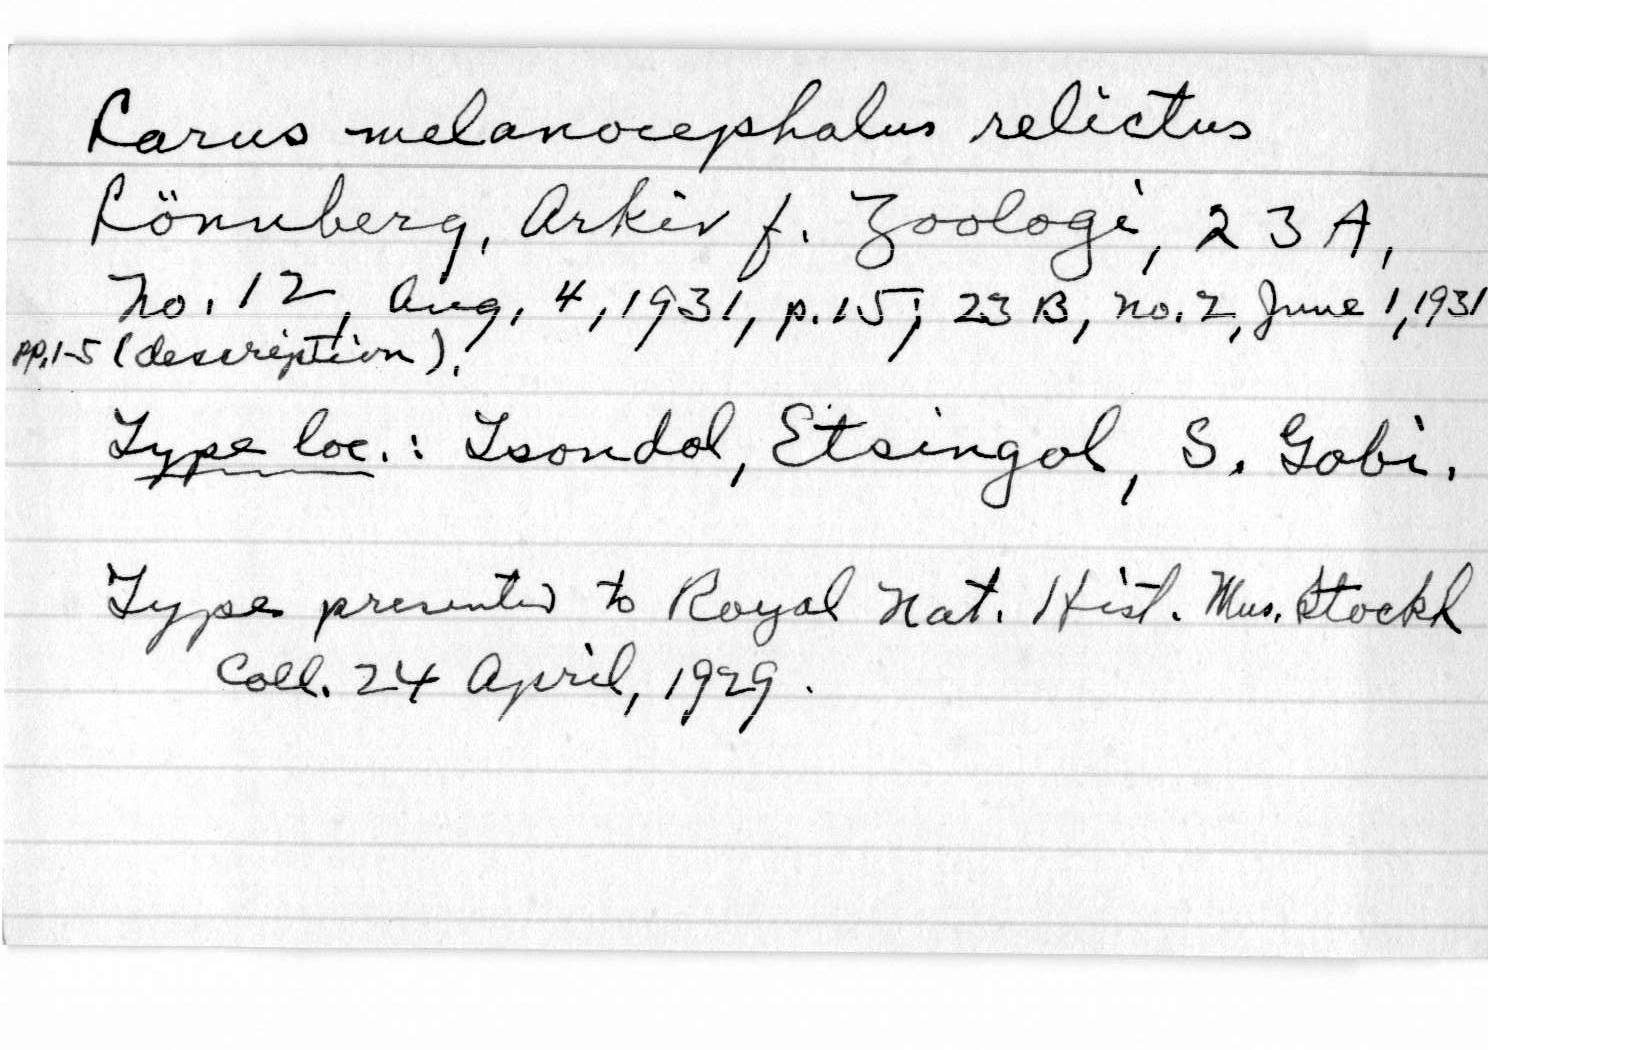 Larus melanocephalus relictus
Lönnberg, Arkiv f. Zoologi, 23A,
No. 12, Aug, 4, 1931, p. 15; 23 B, No. 2, June 1, 1931
pp. 1-5 (description).
Type loc.: Tsondol, Etsingol, S. Gobi.
Type presented to Royal Nat. Hist. Mus. Stockh
Coll. 24 April, 1929.